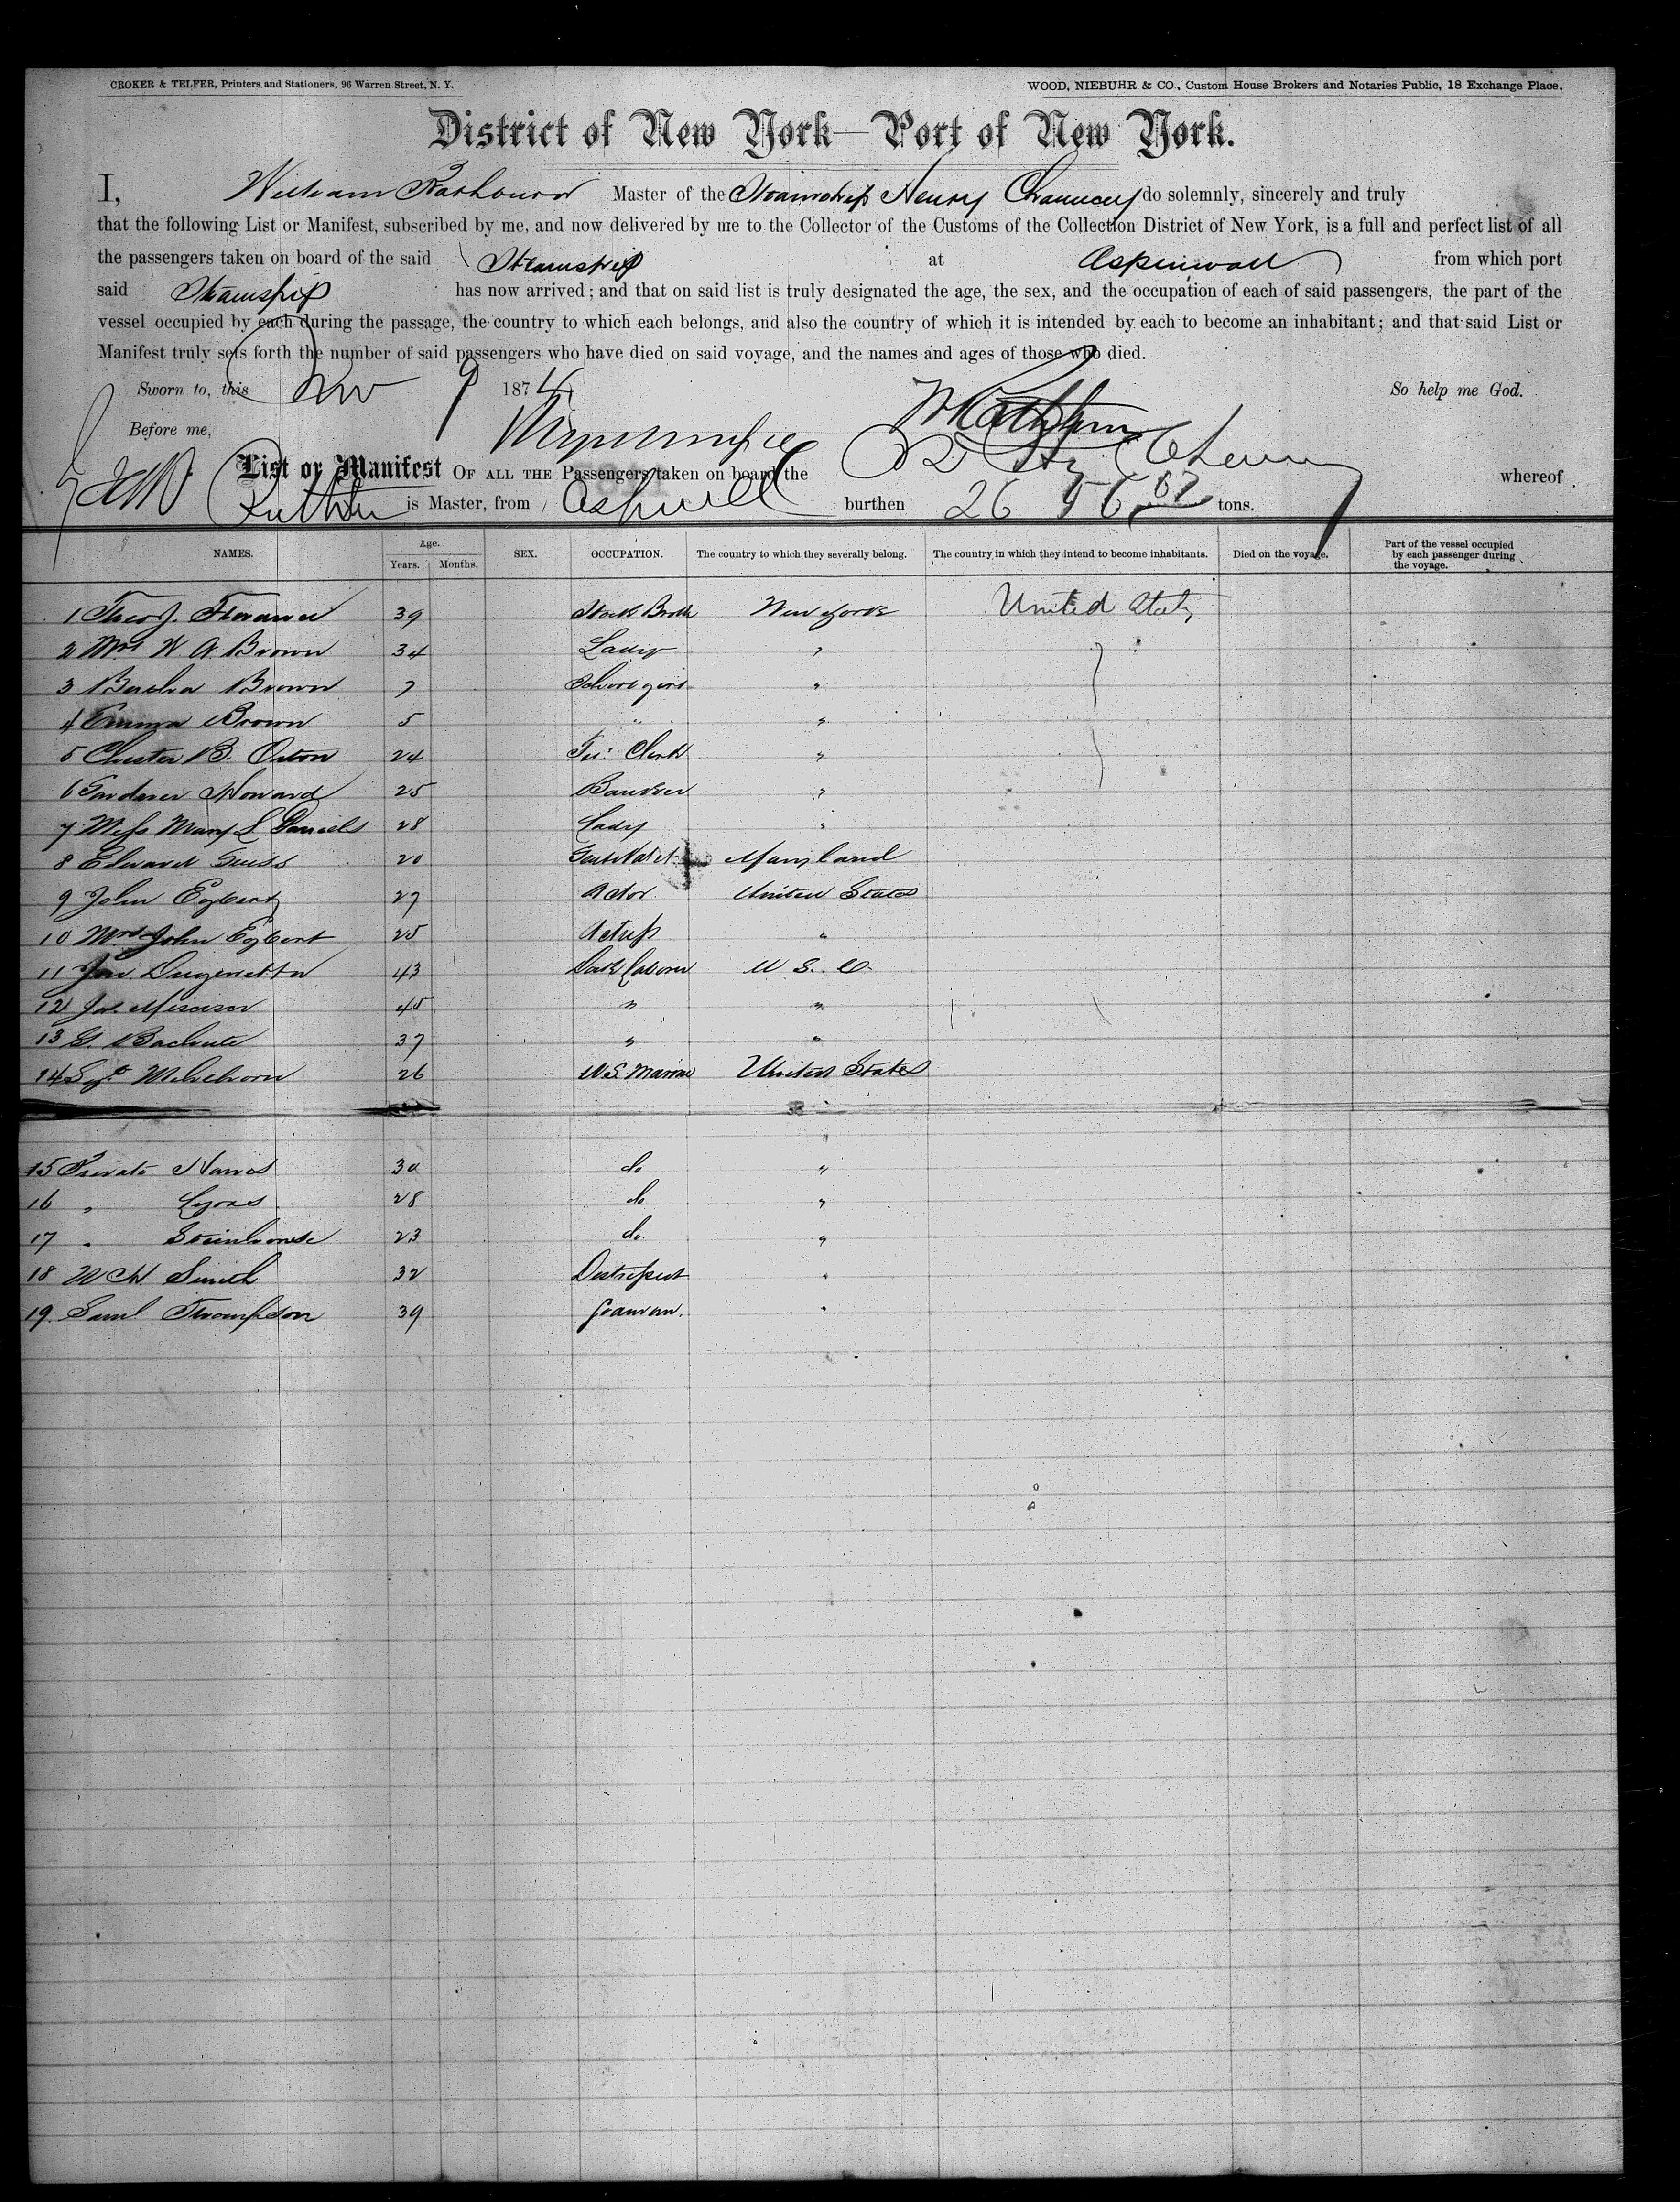 CROKER & TELFER, Printers and Stationers, 96 Warren Street, N. Y. WOOD, NIEBUHR & CO., Custom House Brokers and Notaries Public, 18 Exchange Place.
District of New York—Port of New York.
I, William Rathbourn Master of the Steamship Henry Chauncey do solemnly, sincerely and truly
that the following List or Manifest, subscribed by me, and now delivered by me to the Collector of the Customs of the Collection District of New York, is a full and perfect list of all
the passengers taken on board of the said Steamship at Aspinwall from which port
said Steamship has now arrived; and that on said list is truly designated the age, the sex, and the occupation of each of said passengers, the part of the
vessel occupied by each during the passage, the country to which each belongs, and also the country of which it is intended by each to become an inhabitant; and that said List or
Manifest truly sets forth the number of said passengers who have died on said voyage, and the names and ages of those who died.
Sworn to, this Nov 9 1874 So help me God.
Before me,
List or Manifest OF ALL THE Passengers taken on board the whereof
is Master, from burthen 26 56 tons.
NAMES. Age. Years. Months. SEX. OCCUPATION. The country to which they severally belong. The country in which they intend to become inhabitants. Died on the voyage. Part of the vessel occupied by each passenger during the voyage.
1 Theo J. 39 Stock New York United States
2 Mrs W A Brown 34 Lady "
3 Bertha Brown 7 School girl "
4 Emma Brown 5 " "
5 Chester B. Orton 24 Clerk "
6 Gardner Howard 25 Banker "
7 Miss Mary L Daniels 28 Lady "
8 Edward 20 Maryland
9 John Egbert 27 Actor United States
10 Mrs John Egbert 25 Actress "
11 43 Dock Laborer U S. C.
12 45 " "
13 G. 37 " "
14 Sgt 26 U S Marine United States
15 Private Harris 30 do "
16 " Lyons 28 do "
17 " Steinhouse 23 do. "
18 W H Smith 32 "
19. Saml Thompson 39 "